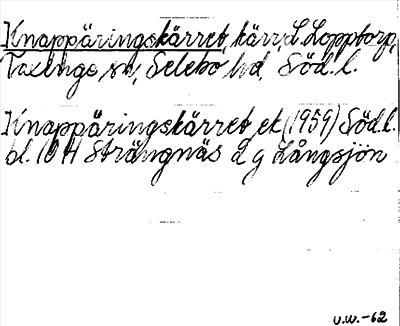 Knappäringskärret, kärr, L. Lopptorp,
Taxinge sn, Selebo hd, Söd. l.
Knappäringskärret ek (1959) Söd. l.
bl. 10 H Strängnäs 2 g Långsjön
v.w.-62